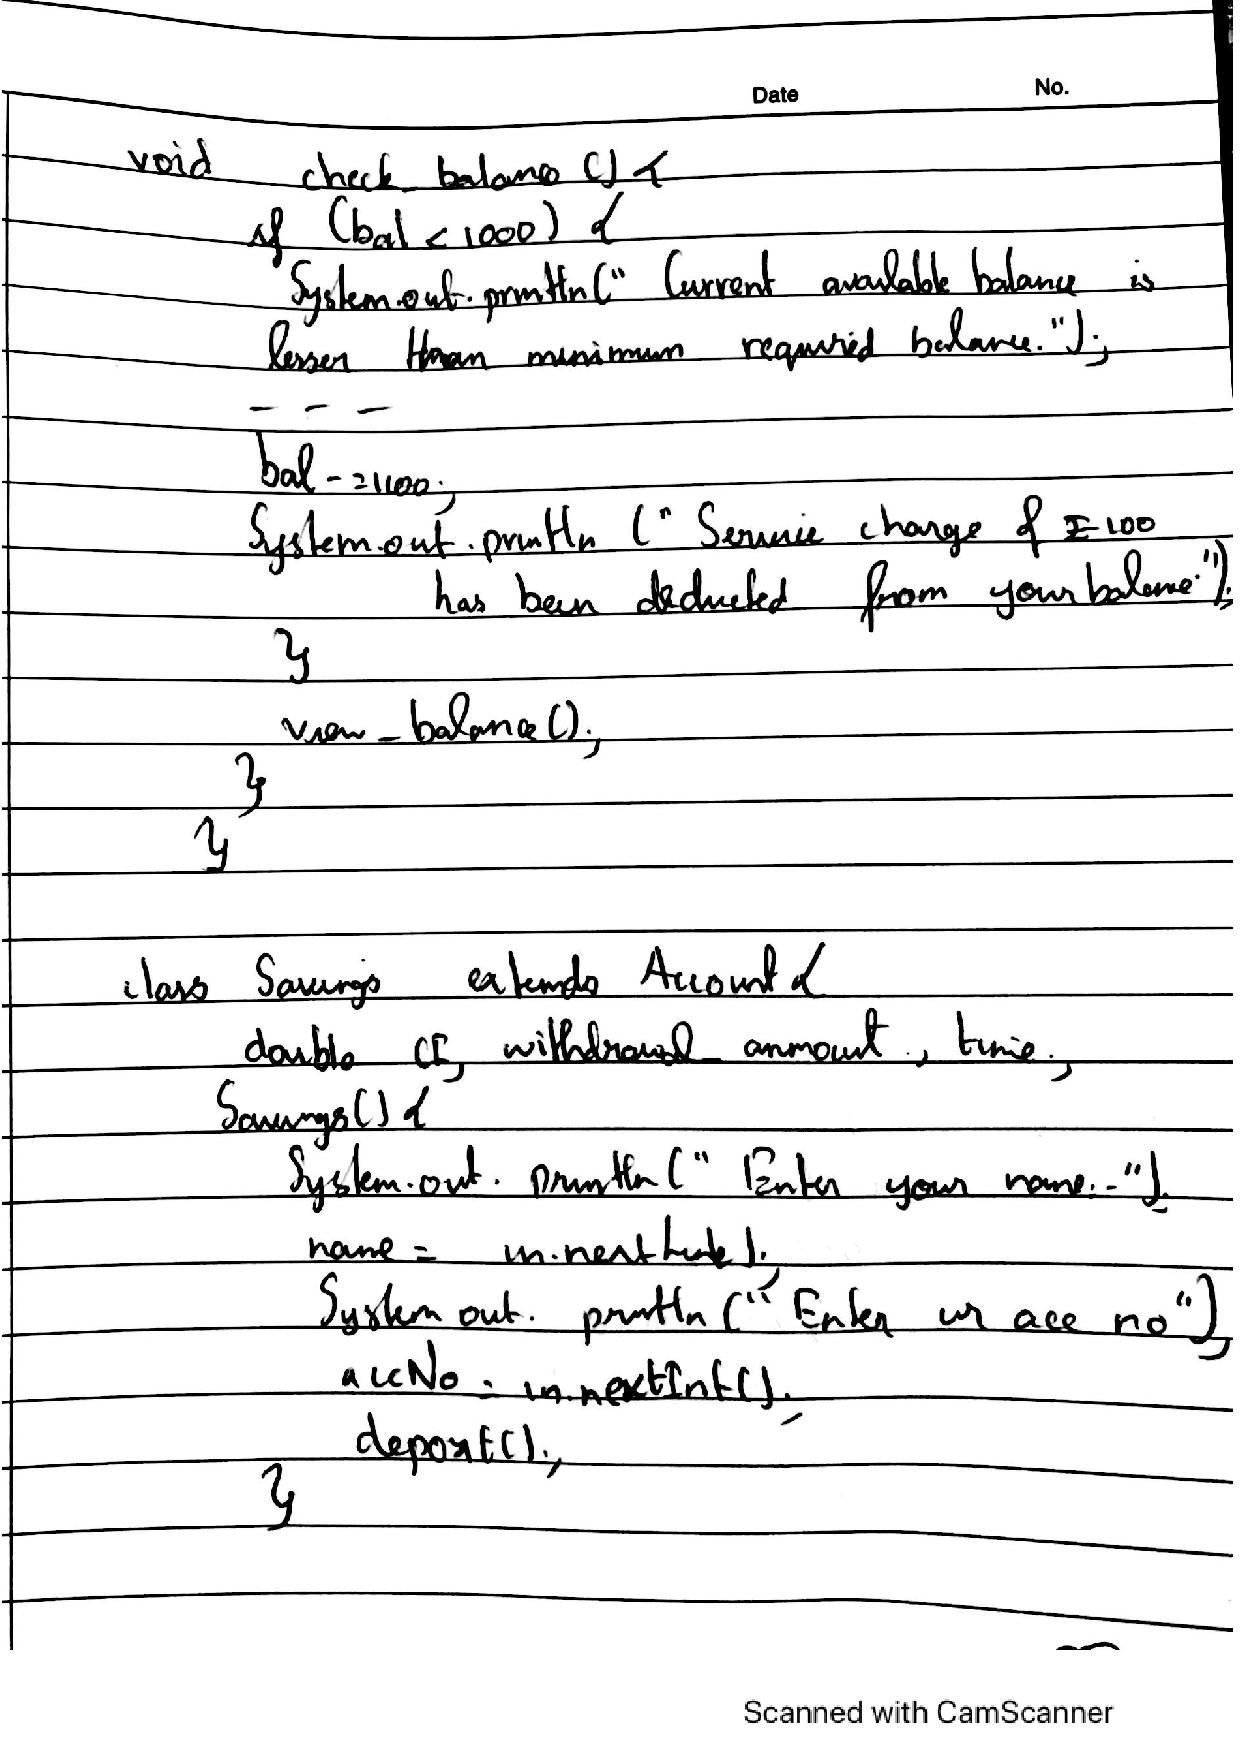 Date No.
void check_balance () {
if (bal < 1000) {
System.out.println(" Current available balance is
lesser than minimum required balance.");
- - -
bal -= 100;
System.out.println (" Service charge of 100
has been deducted from your balance.");
}
view_balance();
}
}
class Savings extends Account {
double CI, withdrawal_anmount, time;
Savings() {
System.out.println(" Enter your name:-");
name = in.nextLine();
System out. println (" Enter ur acc no");
accNo = in.nextInt();
deposit();
}
Scanned with CamScanner